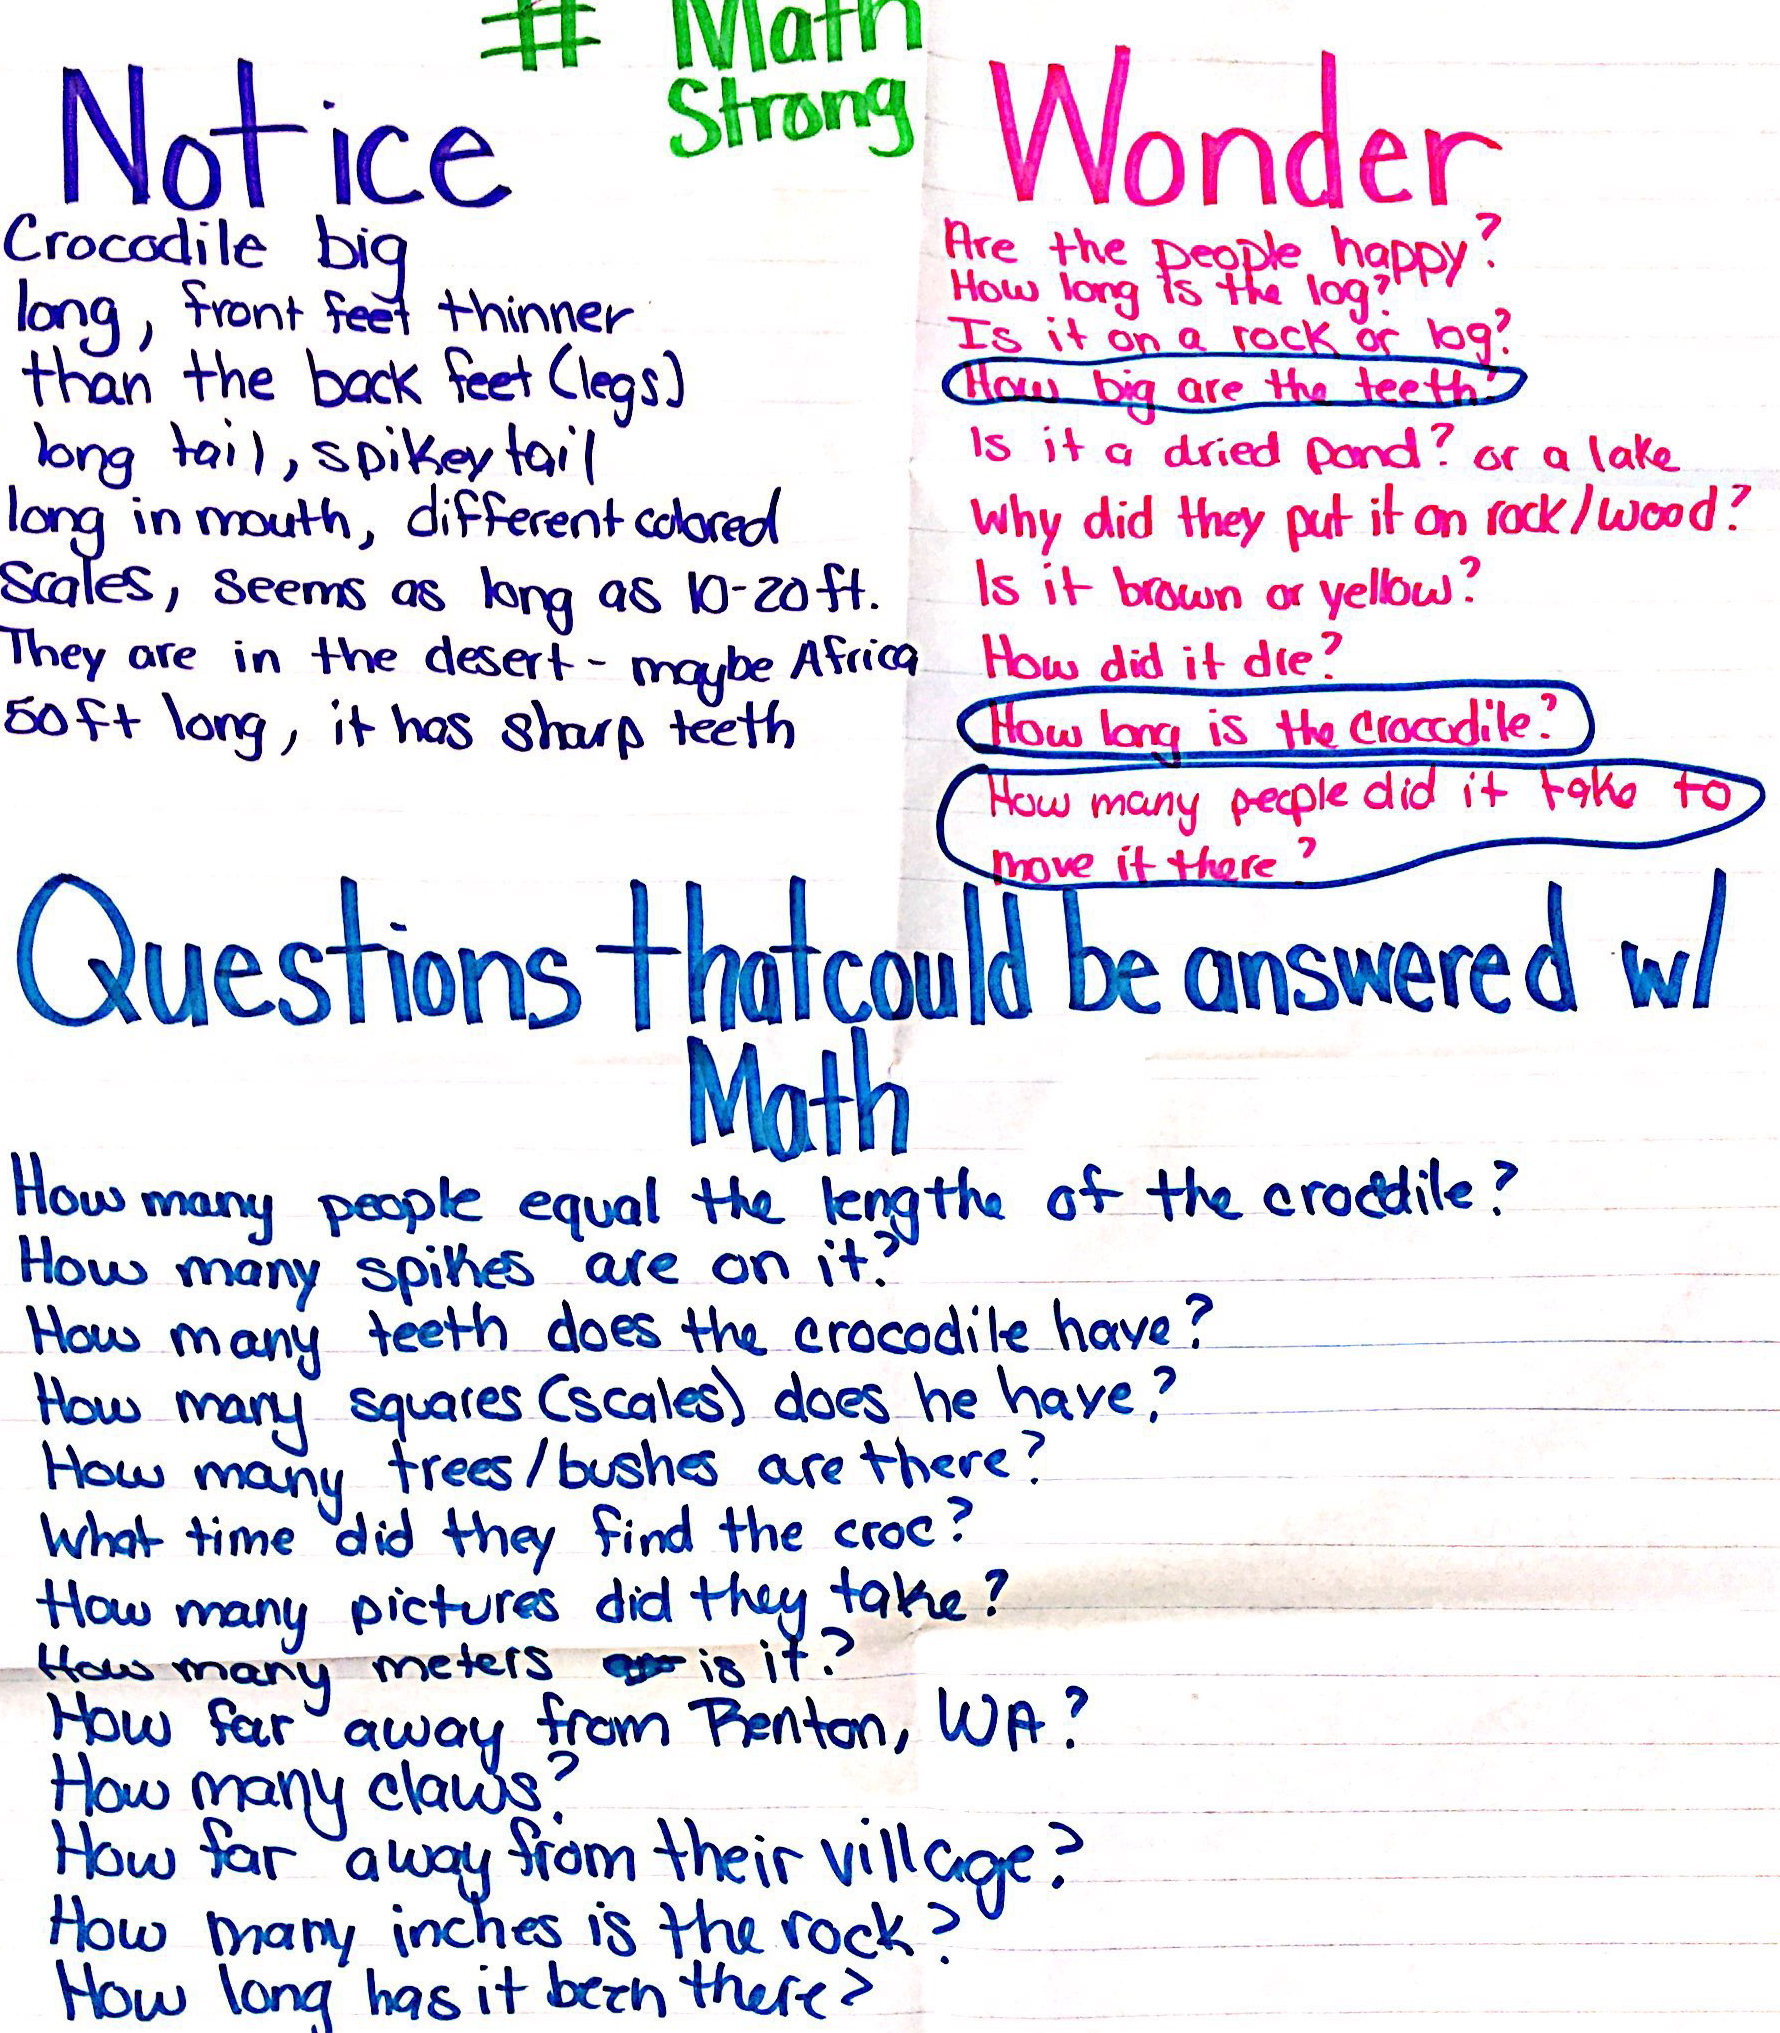 # Math
Strong
Notice
Crocodile big
long, front feet thinner
than the back feet (legs)
long tail, spikey tail
long in mouth, different colored
Scales, seems as long as 10-20ft.
They are in the desert - maybe Africa
50ft long, it has sharp teeth
Wonder
Are the people happy?
How long is the log?
Is it on a rock or log?
How big are the teeth?
Is it a dried pond? or a lake
Why did they put it on rock/wood?
Is it brown or yellow?
How did it die?
How long is the crocodile?
How many people did it take to
move it there?
Questions that could be answered w/
Math
How many people equal the lengthe of the crocdile?
How many spikes are on it?
How many teeth does the crocodile have?
How many squares (scales) does he have?
How many trees/bushes are there?
What time did they find the croc?
How many pictures did they take?
How many meters is it?
How far away from Renton, WA?
How many claws?
How far away from their village?
How many inches is the rock?
How long has it been there?